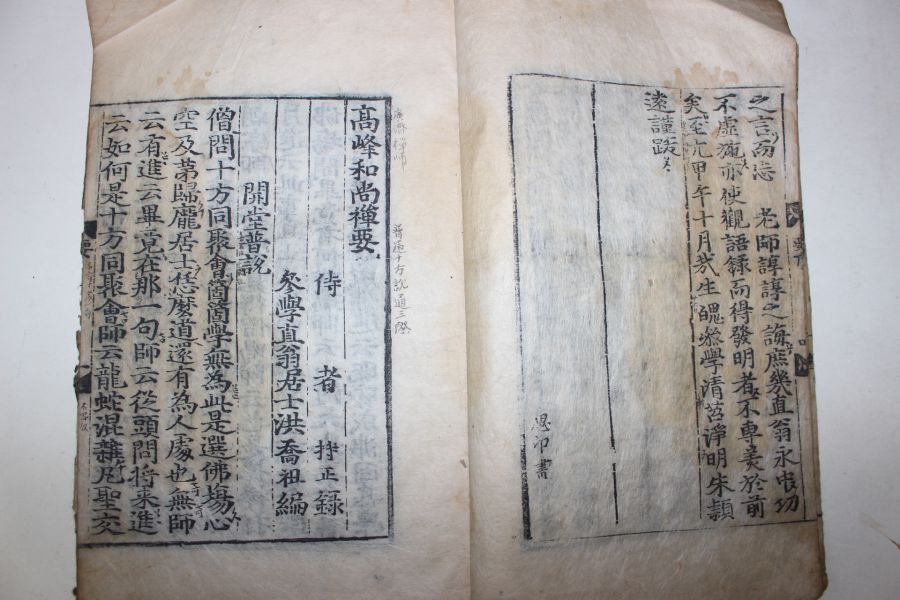 之言而忘　老師諄諄之誨庶幾直翁永中功
不虛施亦使觀語錄而得發明者不專美於前
矣至元甲午十月哉生魄叅學清苕淨明朱穎
遠謹跋
思印書
高峰和尚禪要
侍者　持正錄
叅學直翁居士洪喬祖編
開堂普說
僧問十方同聚會箇箇學無為此是選佛場心
空及第歸龐居士恁麼道還有為人處也無師
云有進云畢竟在那一句師云從頭問將來進
云如何是十方同聚會師云龍蛇混雜凡聖交
普通十方說通三際